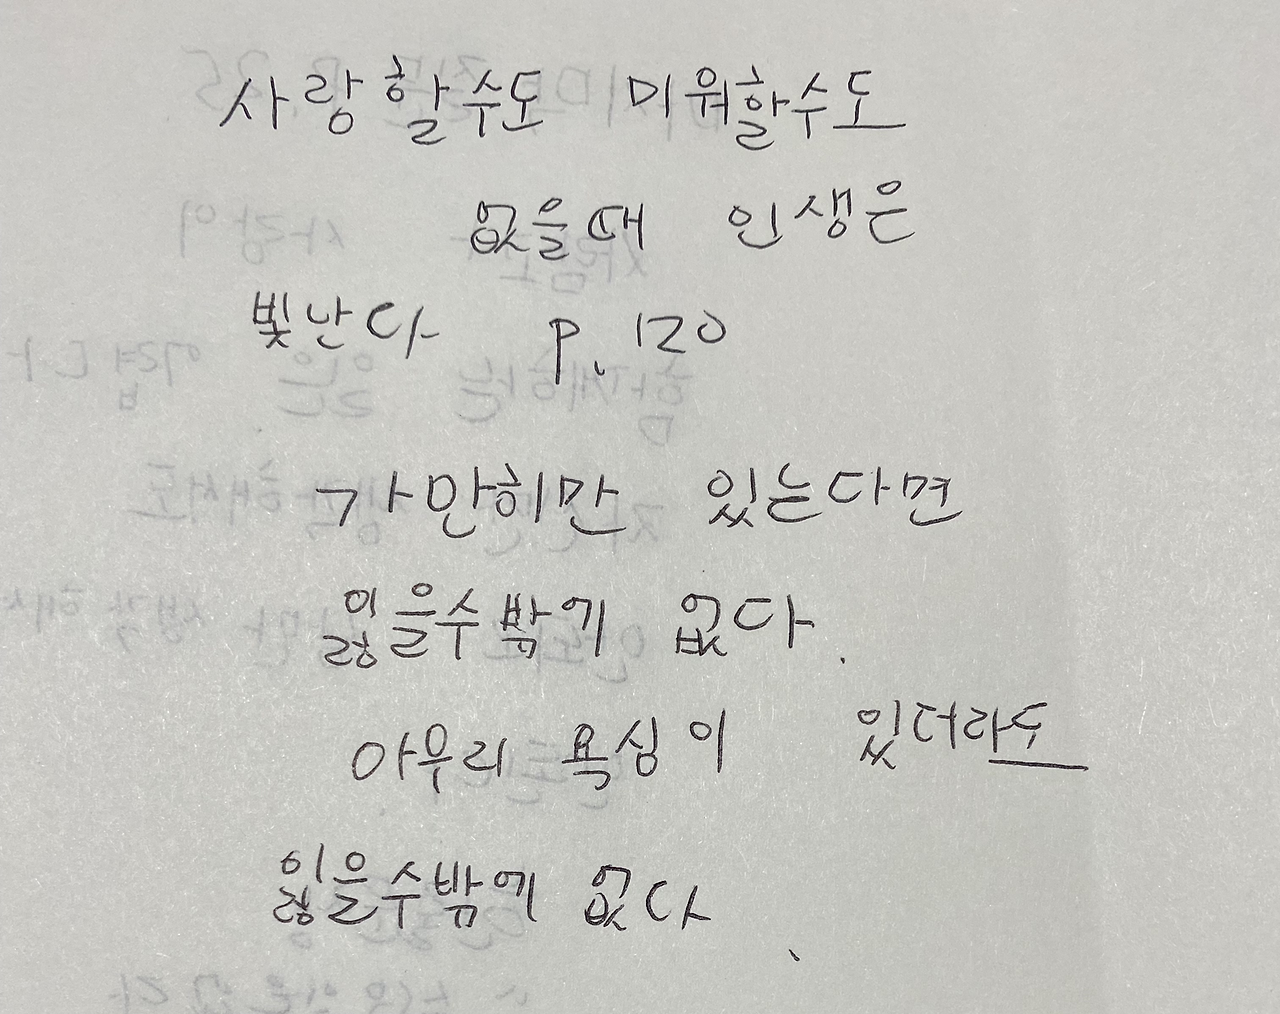 사랑할수도 미워할수도
없을때 인생은
빛난다 p.120
가만히만 있는다면
잃을수밖에 없다.
아무리 욕심이 있더라도
잃을수밖에 없다.